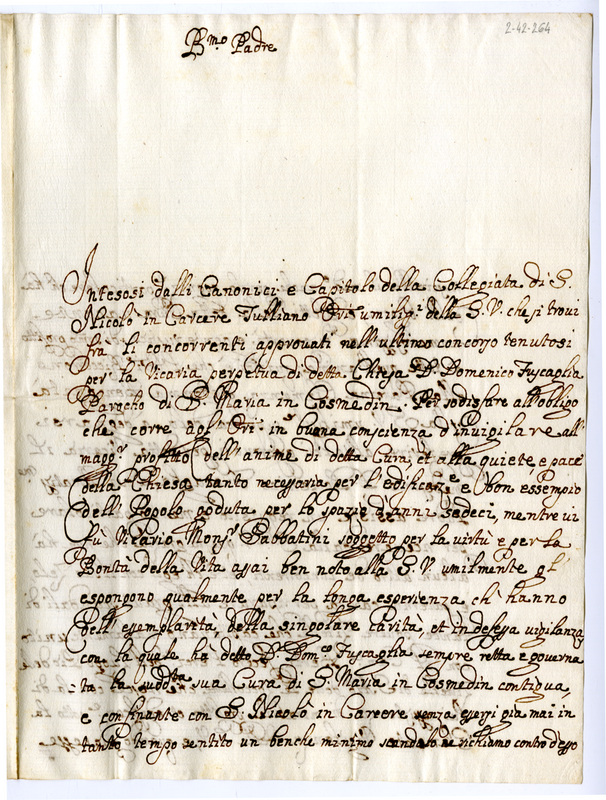 2-42-264
B.mo Padre
Intesosi dalli Canonici e Capitolo della Collegiata di S.
Nicolò in Carcere Tulliano Ori umiliss.i della S. V. che si trovi
frà li concorrenti approvati nell'ultimo concorso tenutosi
per la Vicaria perpetua di detta Chiesa D. Domenico Fuscaglia
Parocho di S. Maria in Cosmedin. Per sodisfare all'obligo
che corre agl' Ori in buona conscienza d'invigilare all'
magg.r profitto dell'anime di detta Cura, et alla quiete e pace
della Chiesa tanto necessaria per l'edificaz.e e bon essempio
dell Popolo goduta per lo spazio d'anni sedeci, mentre vi
fù Vicario Mons.r Sabbatini soggetto per la virtù e per la
Bontà della Vita assai ben noto alla S. V. umilmente gl'
espongono qualmente per la longa esperienza ch' hanno
dell' esemplarità, della singolare carità, et indefessa vigilanza
con la quale ha detto D. Dom.co Fuscaglia sempre retta e governa
ta la sudd.ta sua Cura di S. Maria in Cosmedin contigua,
e confinante con S. Nicolò in Carcere senza essersi già mai in
tanto tempo sentito un benche minimo scandalo ne richiamo contro d'esso